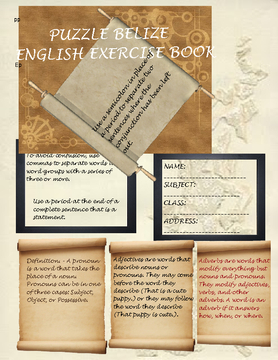 PUZZLE BELIZE
ENGLISH EXERCISE BOOK
Use a semicolon in place of
a period to separate two
sentences where the
conjunction has been left
out.
To avoid confusion, use
commas to separate words
word groups with a series of
three or more.
Use a period at the end of a
complete sentence that is a
statement.
NAME:
SUBJECT:
CLASS:
ADDRESS:
Definition - A pronoun
is a word that takes the
place of a noun.
Pronouns can be in one
of three cases: Subject,
Object, or Possessive.
Adjectives are words that
describe nouns or
pronouns. They may come
before the word they
describe (That is a cute
puppy.) or they may follow
the word they describe
(That puppy is cute.).
Adverbs are words that
modify everything but
nouns and pronouns.
They modify adjectives,
verbs, and other
adverbs. A word is an
adverb if it answers
how, when, or where.